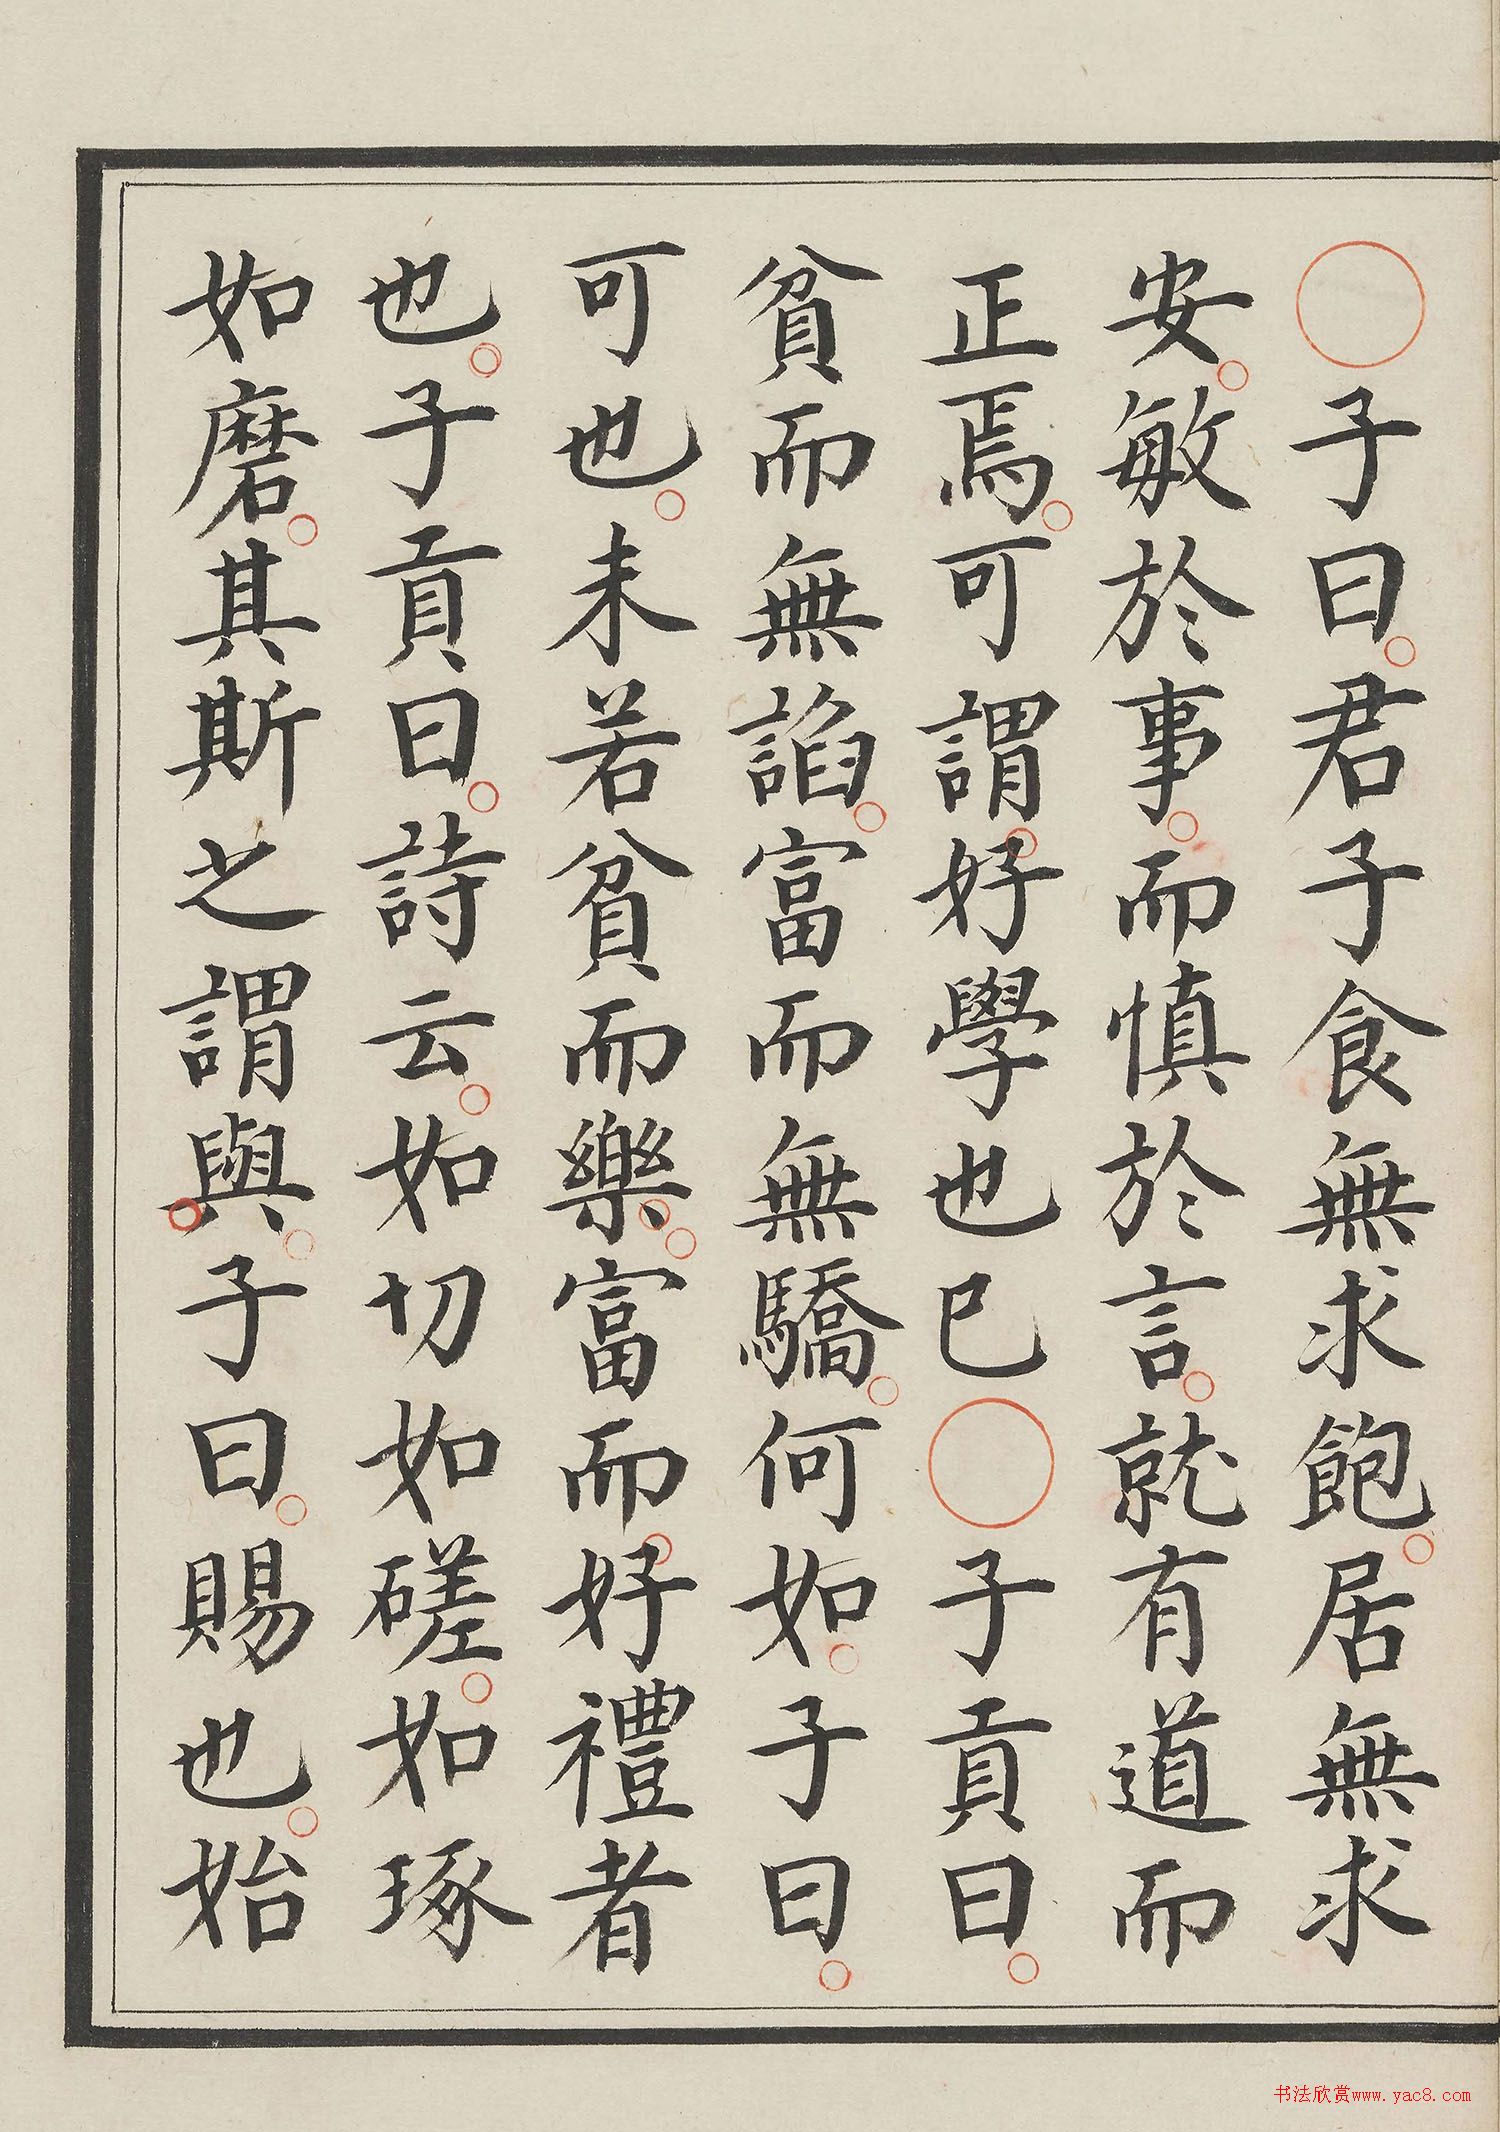 ○子曰。君子食無求飽。居無求
安。敏於事。而慎於言。就有道而
正焉。可謂好學也已○子貢曰。
貧而無諂。富而無驕。何如。子曰。
可也。未若貧而樂。富而好禮者
也。子貢曰。詩云。如切如磋。如琢
如磨。其斯之謂與。子曰。賜也。始
书法欣赏www.yac8.com